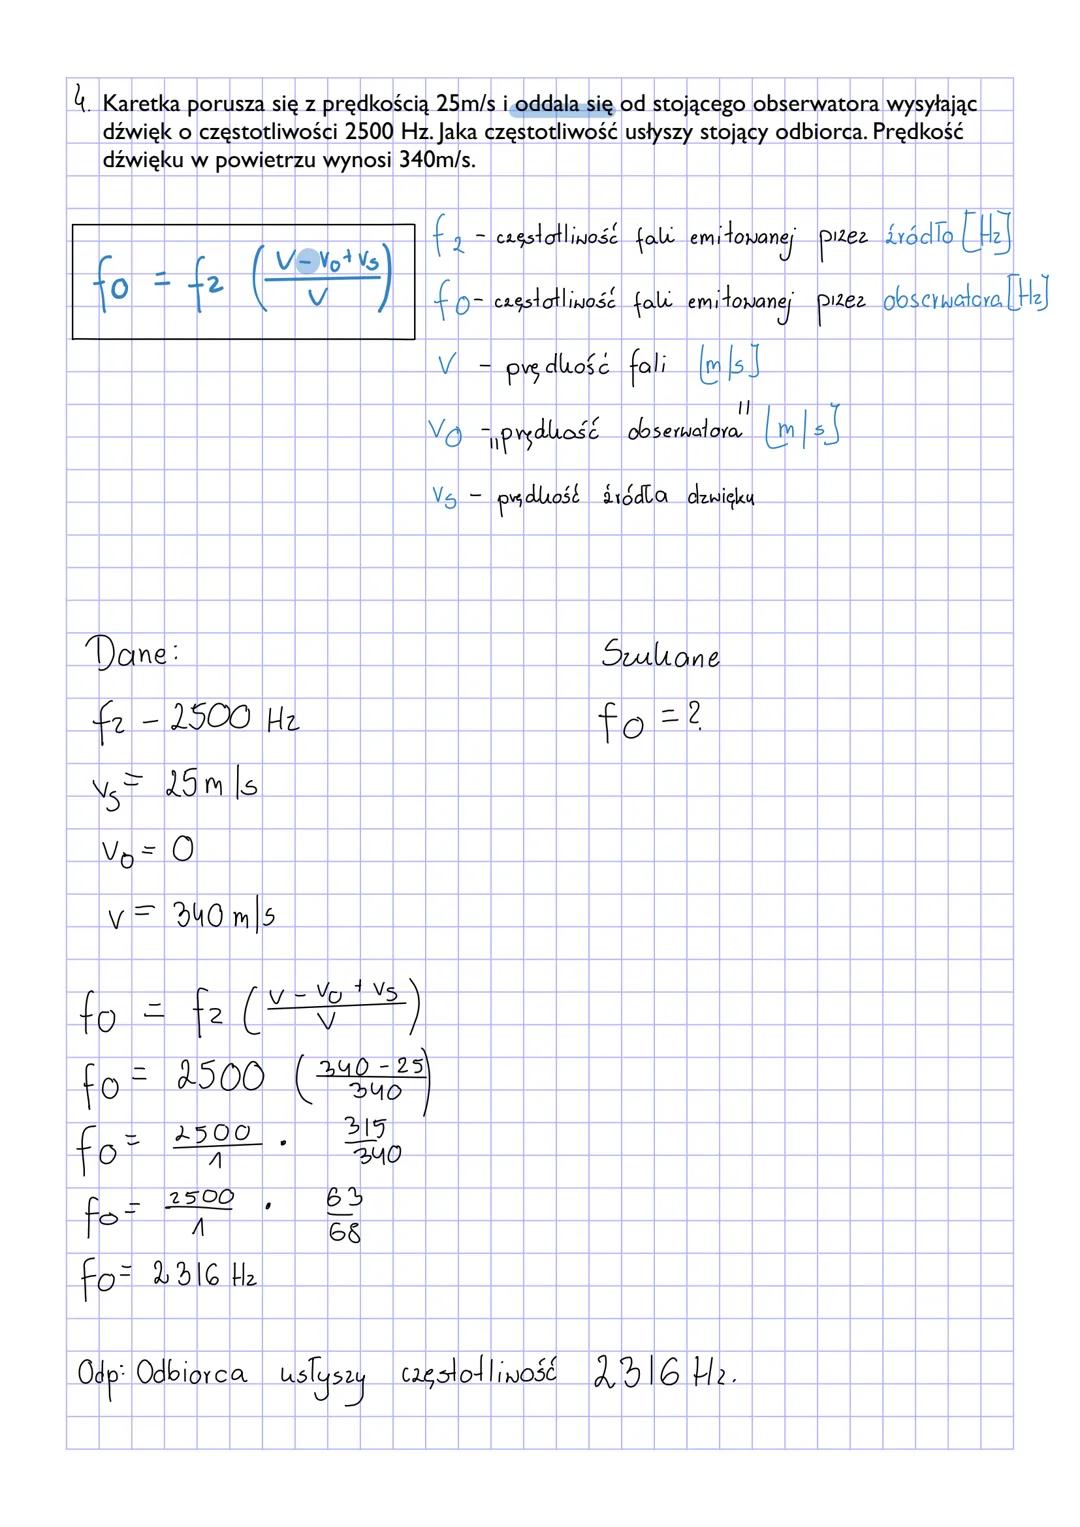 4. Karetka porusza się z prędkością 25m/s i oddala się od stojącego obserwatora wysyłając
dźwięk o częstotliwości 2500 Hz. Jaka częstotliwość usłyszy stojący odbiorca. Prędkość
dźwięku w powietrzu wynosi 340m/s.
fo = fz (V - Vo + Vs / V)
fz - częstotliwość fali emitowanej przez źródło [Hz]
fo - częstotliwość fali emitowanej przez obserwatora [Hz]
V - prędkość fali [m/s]
Vo - „prędkość obserwatora" [m/s]
Vs - prędkość źródła dzwięku
Dane:
Szukane
fz - 2500 Hz
fo = ?
Vs = 25 m/s
Vo = 0
v = 340 m/s
fo = fz (V - Vo + Vs / V)
fo = 2500 (340 - 25 / 340)
fo = 2500/1 · 315/340
fo = 2500/1 · 63/68
fo = 2316 Hz
Odp: Odbiorca usłyszy częstotliwość 2316 Hz.